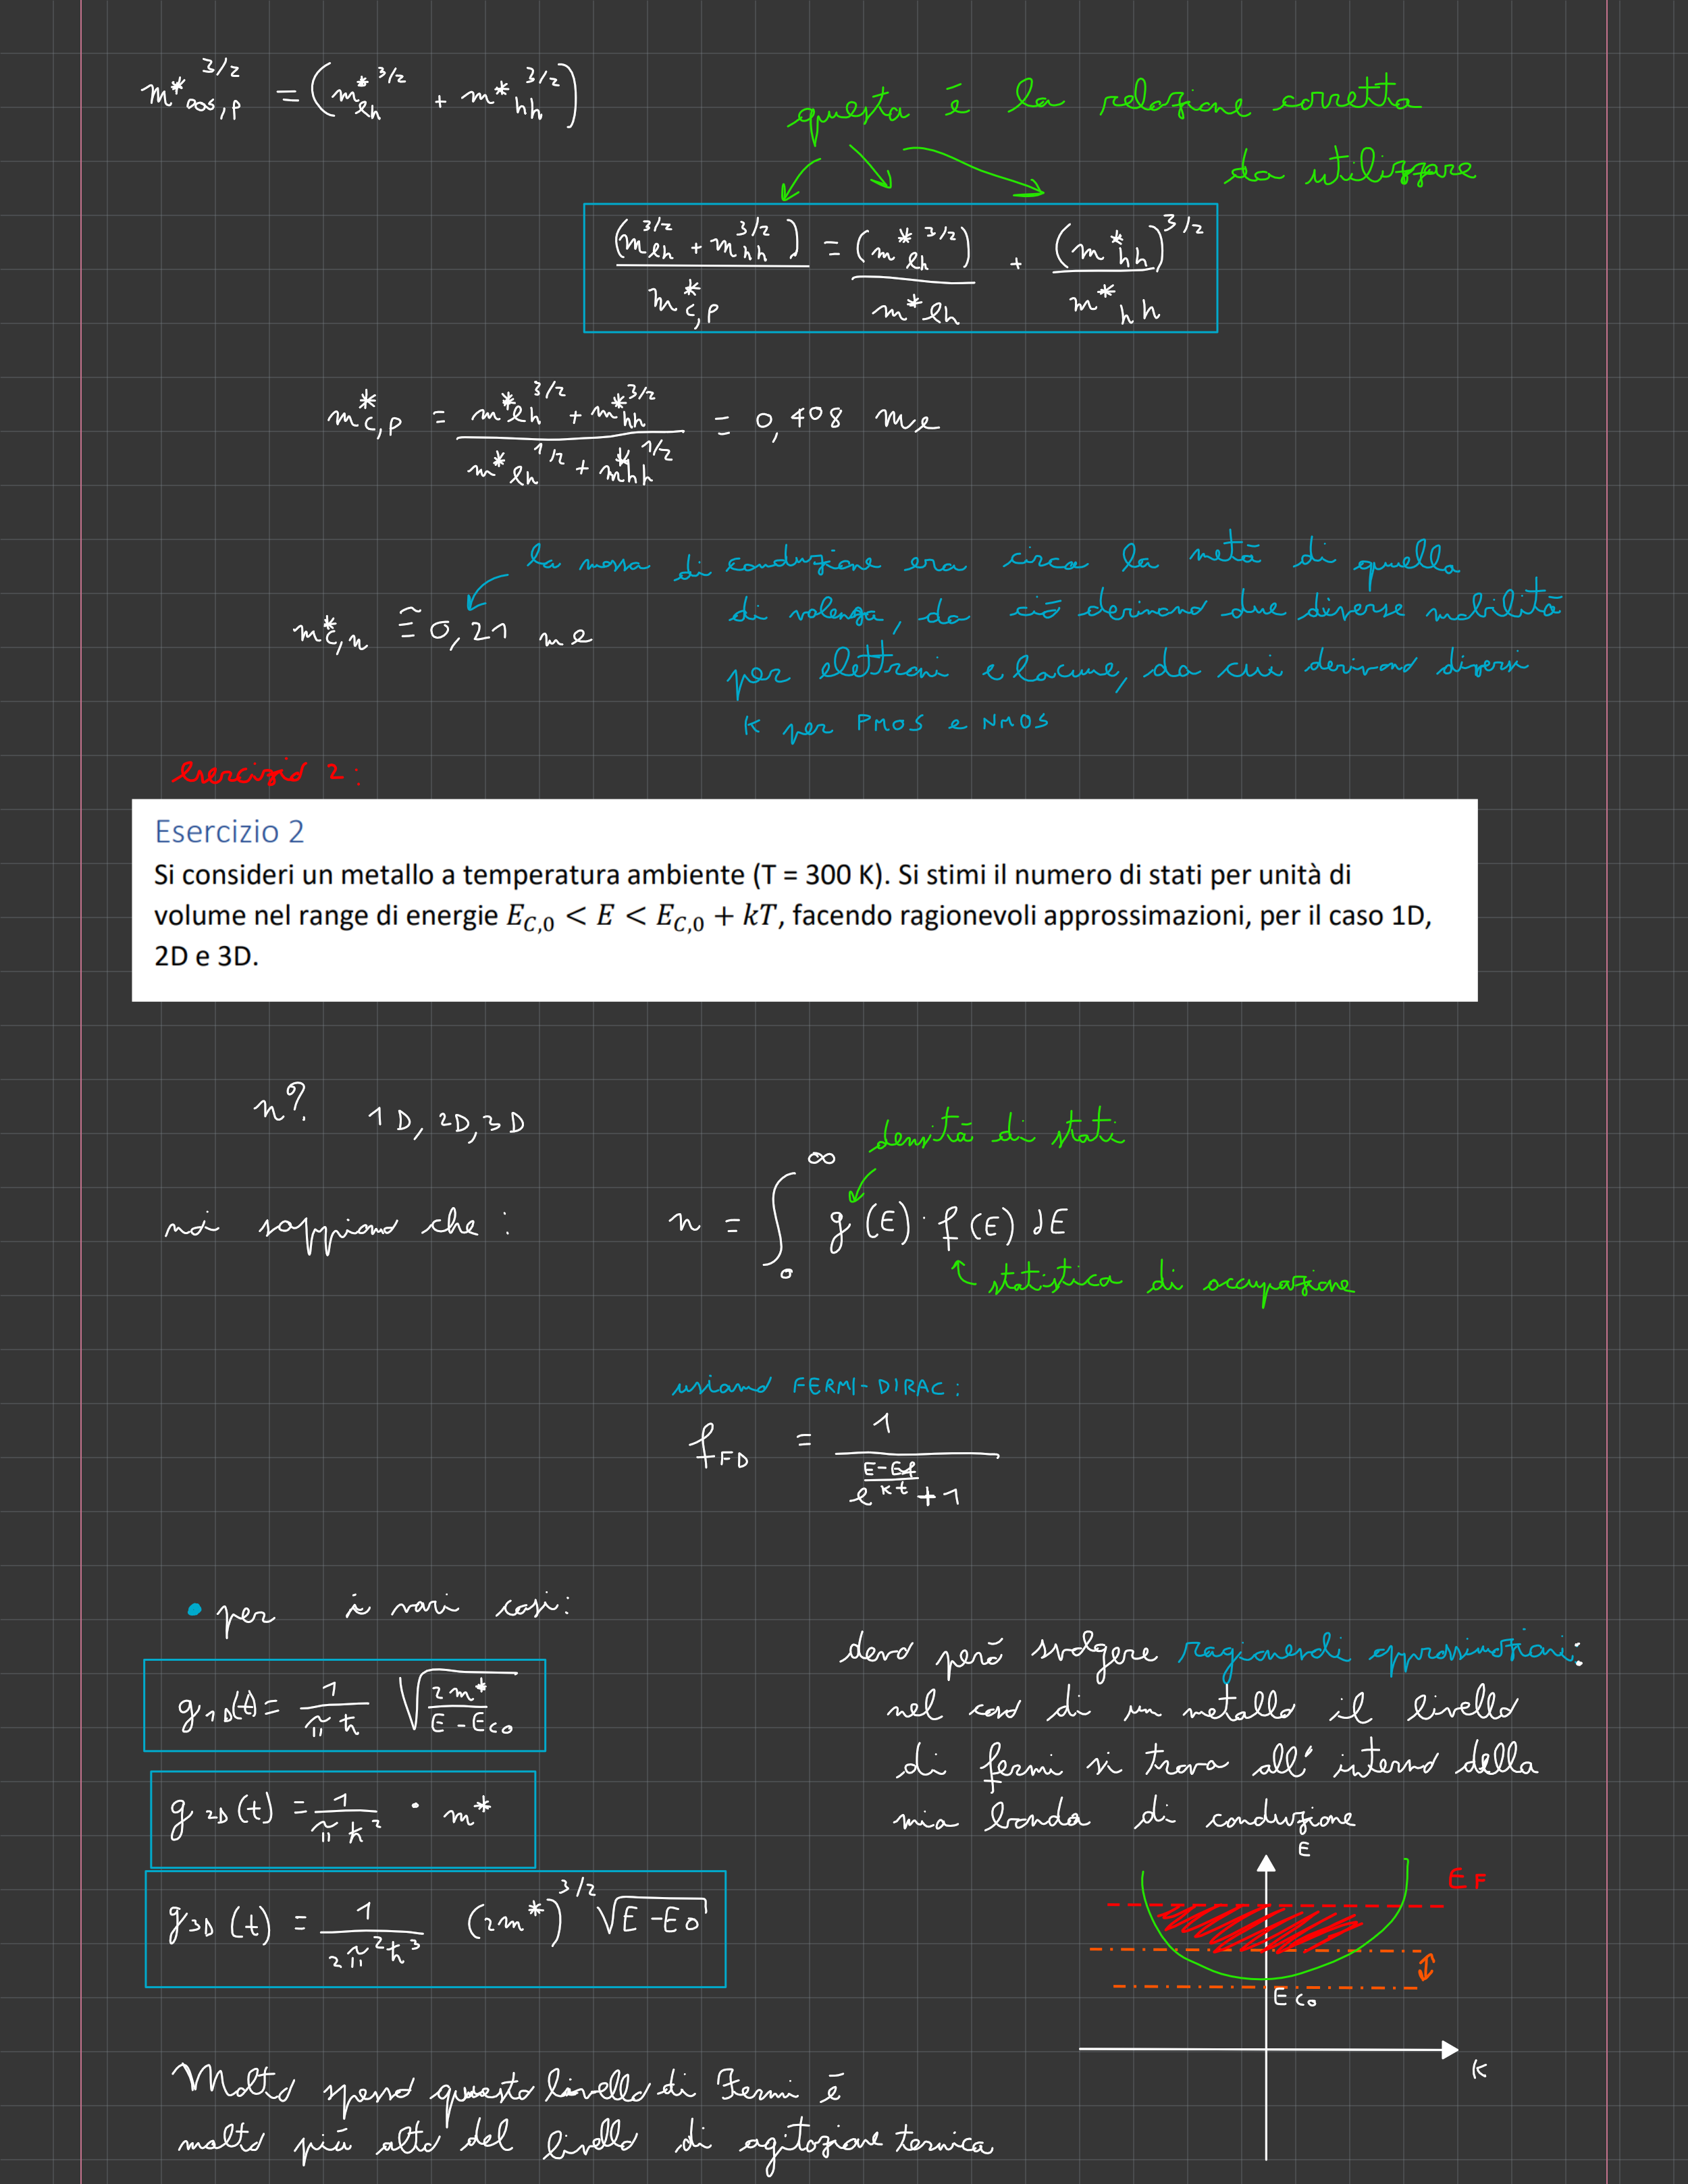 m*dos,p^3/2 = (m*lh^3/2 + m*hh^3/2)
questa è la relazione corretta
da utilizzare
(mlh^3/2 + mhh^3/2) / m*c,p = (m*lh^3/2) / m*lh + (m*hh)^3/2 / m*hh
m*c,p = (m*lh^3/2 + m*hh^3/2) / (m*lh^1/2 + m*hh^1/2) = 0,408 me
la massa di conduzione era circa la metà di quella
di valenza, da ciò derivano due diverse mobilità
m*c,n ≅ 0,21 me
per elettroni e lacune, da cui derivano diversi
K per PMOS e NMOS
esercizio 2:
Esercizio 2
Si consideri un metallo a temperatura ambiente (T = 300 K). Si stimi il numero di stati per unità di
volume nel range di energie E_C,0 < E < E_C,0 + kT, facendo ragionevoli approssimazioni, per il caso 1D,
2D e 3D.
n? 1D, 2D, 3D
densità di stati
noi sappiamo che : n = ∫₀^∞ g(E) · f(E) dE
statistica di occupazione
usiamo FERMI-DIRAC :
fFD = 1 / (e^((E-Ef)/kt) + 1)
• per i vari casi:
g1D(t) = 1/(πħ) √(2m*/(E - Eco))
g2D(t) = 1/(πħ²) · m*
g3D(t) = 1/(2π²ħ³) (2m*)^3/2 √(E - Eo)
devo però svolgere ragionevoli approssimazioni:
nel caso di un metallo il livello
di fermi si trova all'interno della
mia banda di conduzione
E
EF
Eco
K
Molto spesso questo livello di Fermi è
molto più alto del livello di agitazione termica